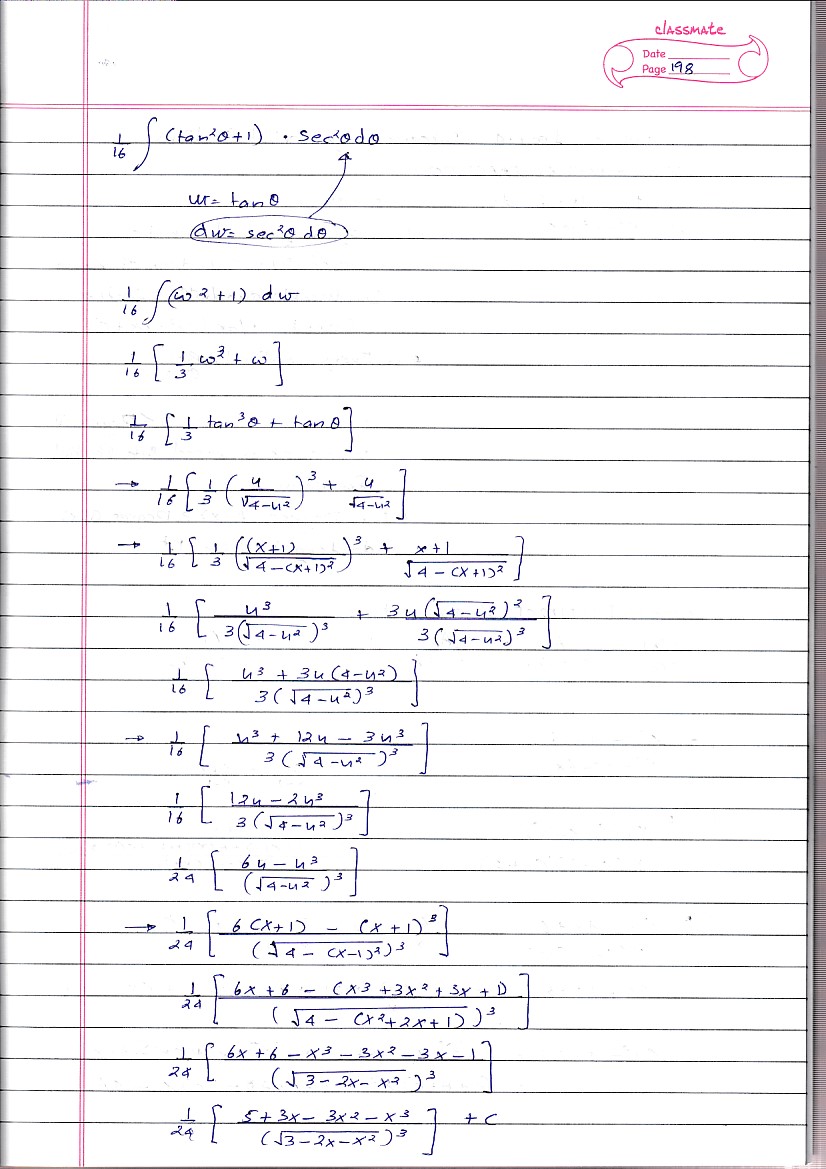 classmate
Date
Page 198
1/16 ∫ (tan²θ+1) · sec²θdθ
w = tanθ
dw = sec²θ dθ
1/16 ∫(w²+1) dw
1/16 [1/3 w³ + w]
1/16 [1/3 tan³θ + tanθ]
→ 1/16 [1/3 (u/√(4-u²))³ + u/√(4-u²)]
→ 1/16 [1/3 ((x+1)/√(4-(x+1)²))³ + x+1/√(4-(x+1)²)]
1/16 [u³/3(√(4-u²))³ + 3u(√(4-u²))²/3(√(4-u²))³]
1/16 [u³ + 3u(4-u²)/3(√(4-u²))³]
→ 1/16 [u³ + 12u - 3u³/3(√(4-u²))³]
1/16 [12u - 2u³/3(√(4-u²))³]
1/24 [6u - u³/(√(4-u²))³]
→ 1/24 [6(x+1) - (x+1)³/(√(4-(x-1)²))³]
1/24 [6x+6 - (x³+3x²+3x+1)/(√(4-(x²+2x+1)))³]
1/24 [6x+6-x³-3x²-3x-1/(√(3-2x-x²))³]
1/24 [5+3x-3x²-x³/(√(3-2x-x²))³] + c